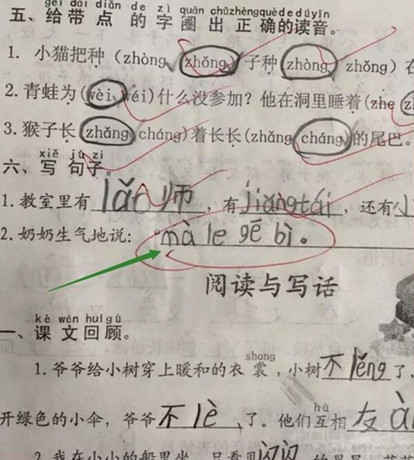 gěi dài diǎn de zì quān chūzhèngquèdedúyīn
五、给带点的字圈出正确的读音。
1. 小猫把种（zhòng zhǒng）子种（zhòng zhǒng）在
2. 青蛙为（wèi wéi）什么没参加？他在洞里睡着（zhe
3. 猴子长（zhǎng cháng）着长长（zhǎng cháng）的尾巴。
xiě jù zi
六、写句子。
1. 教室里有 lǎo 师，有 jiǎngtái，还有小
2. 奶奶生气地说：“mà le gē bì。
阅读与写话
kè wén huí gù
一、课文回顾。
shang
1. 爷爷给小树穿上暖和的衣裳，小树不 lěng 了，
hù
开绿色的小伞，爷爷不 lè 了。他们互相友 ài
2. 我在小小的船里坐，只看见闪闪的星星